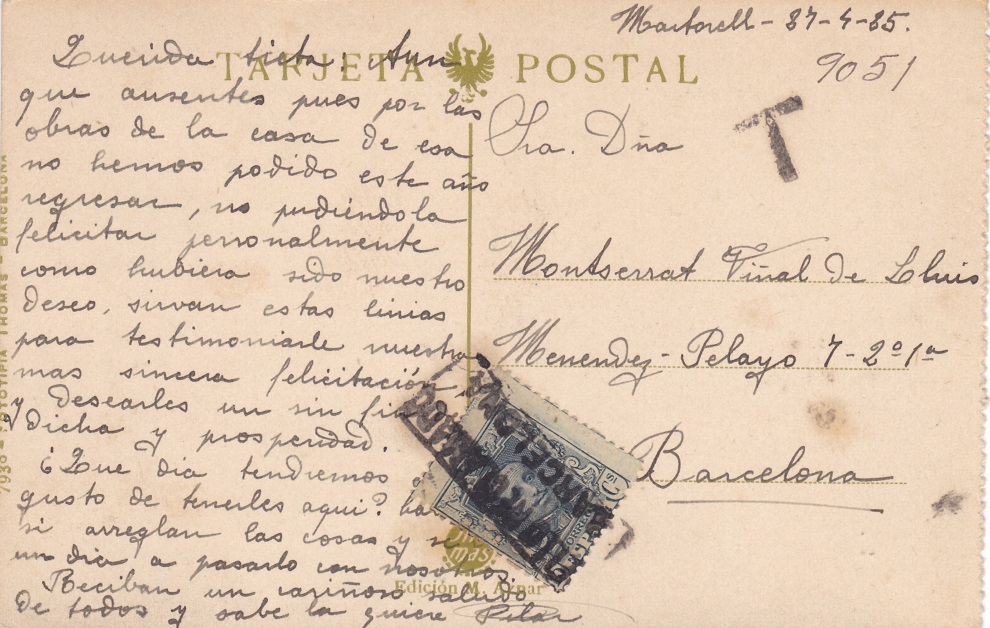 Martorell - 27-4-25.
9051
TARJETA POSTAL
T
Querida tieta: Aun
que ausentes pues por las
obras de la casa de esa
no hemos podido este año
regresar, no pudiéndola
felicitar personalmente
como hubiera sido nuestro
deseo, sirvan estas linias
para testimoniarle nuestra
mas sincera felicitación
y desearles un sin fin
dicha y prosperidad.
¿Que dia tendremos
gusto de tenerles aqui?
si arreglan las cosas y
un dia a pasarlo con nosotros.
Reciban un cariñoso saludo
de todos y sabe la quiere Pilar
Sra. Dña
Montserrat Viñal de Lluis
Menendez-Pelayo 7-2º1ª
Barcelona
BARCELONA
CORREOS
Edición M. Aznar
7938 - FOTOTIPIA THOMAS - BARCELONA